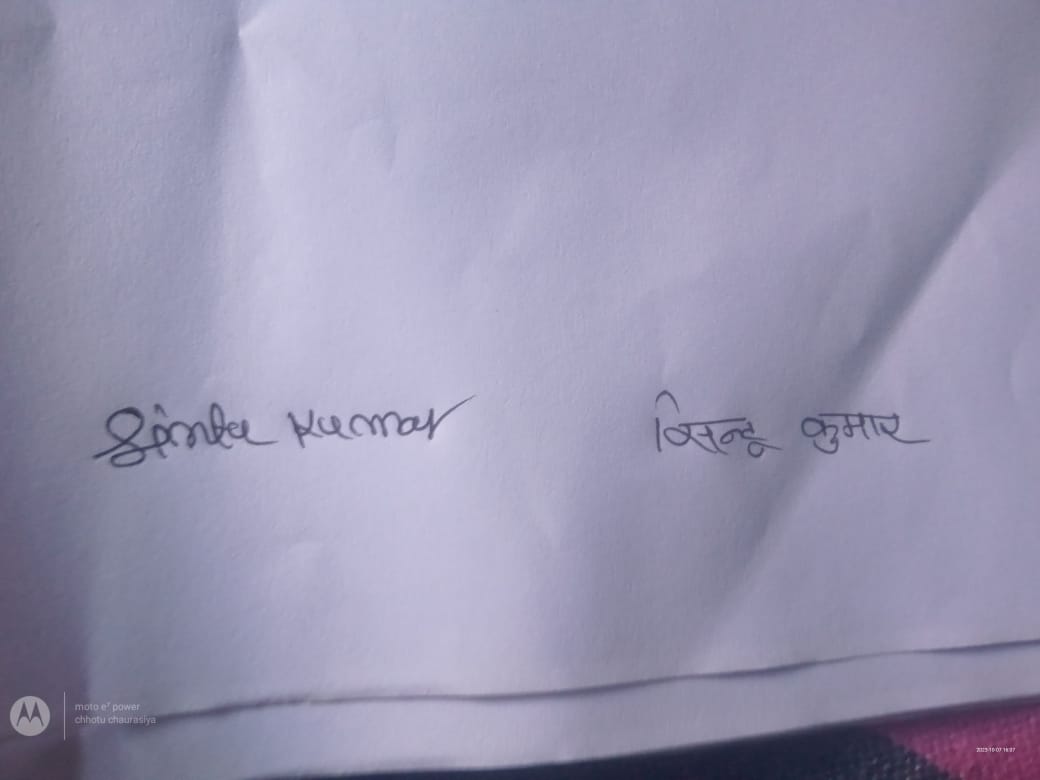 Sintu Kumar सिन्टू कुमार
moto e⁷ power
chhotu chaurasiya
2023-10-07 16:07